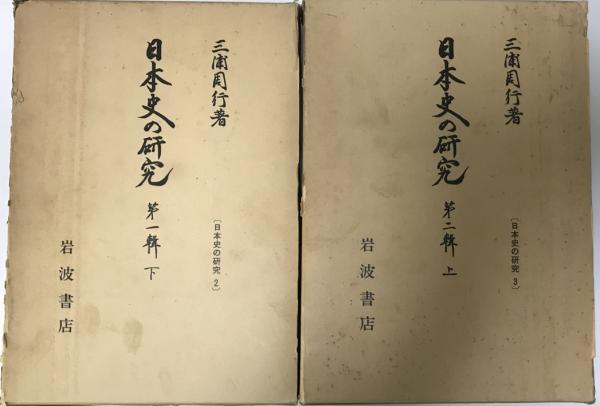 三浦周行著
日本史の研究
第一輯 下
〔日本史の研究 2〕
岩波書店
三浦周行著
日本史の研究
第二輯 上
〔日本史の研究 3〕
岩波書店